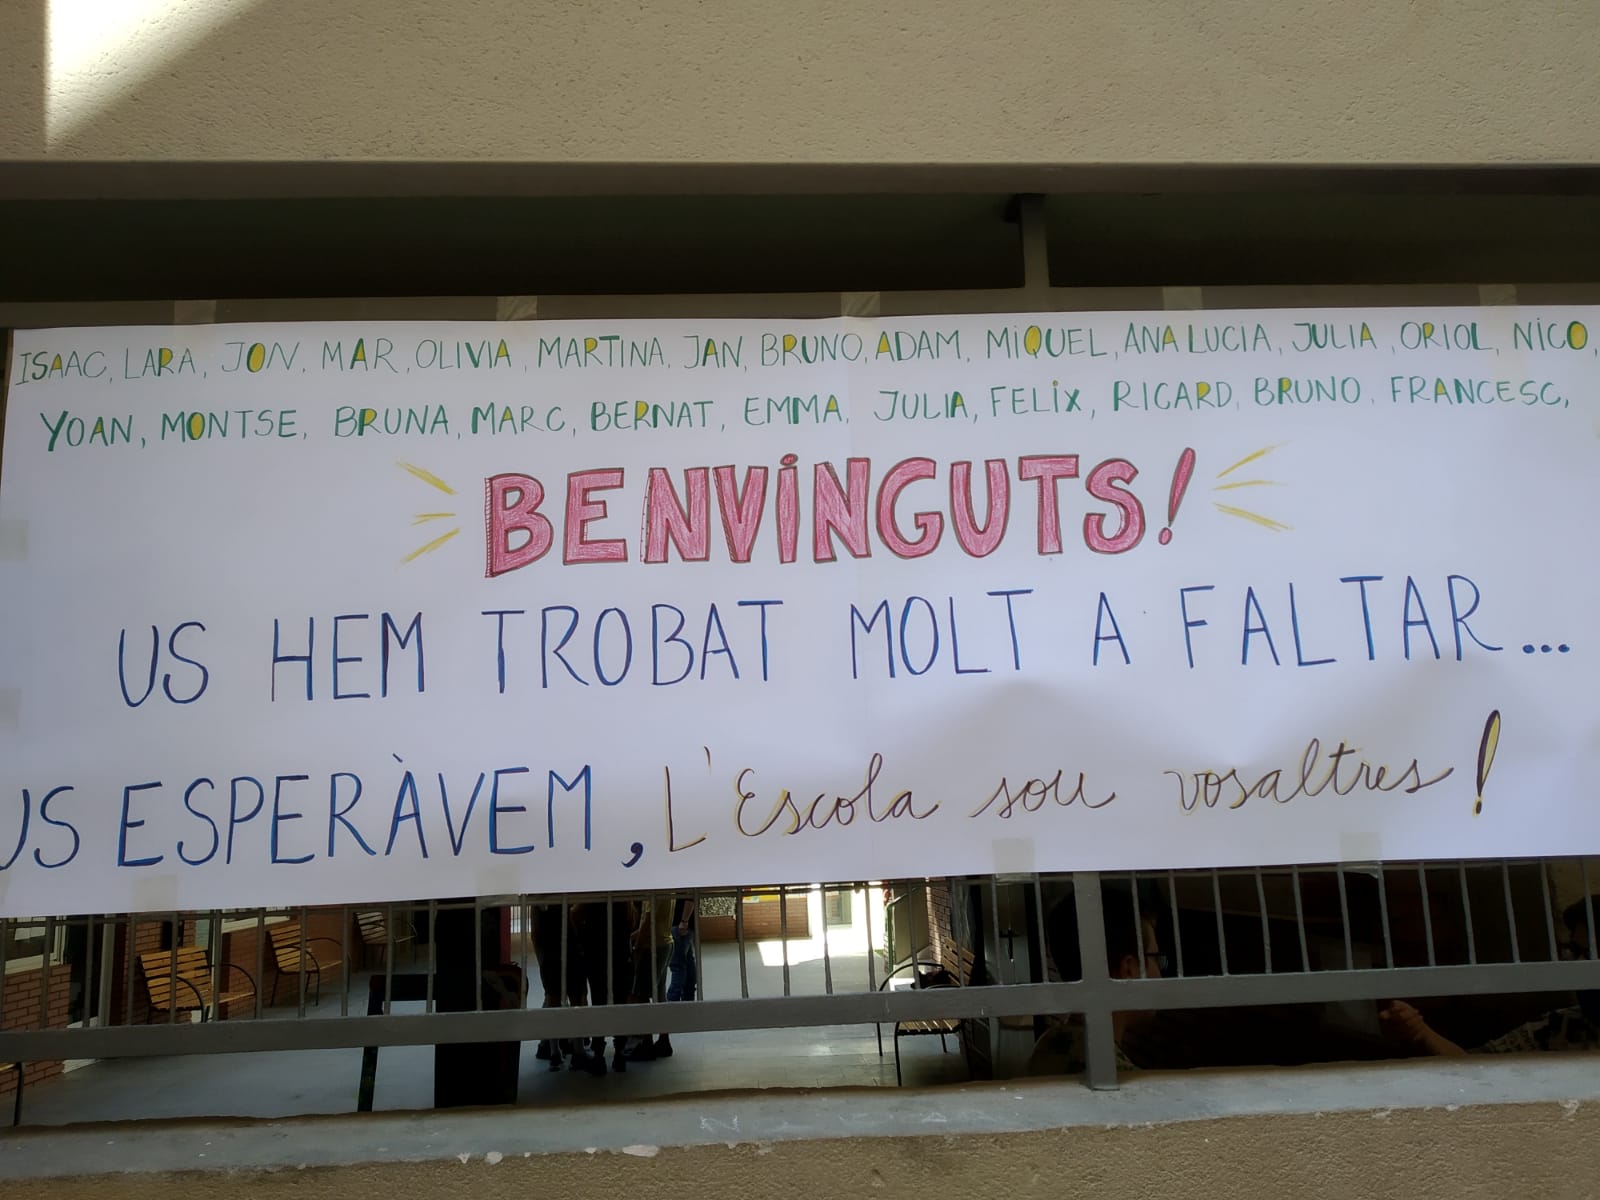 ISAAC, LARA, JON, MAR, OLIVIA, MARTINA, JAN, BRUNO, ADAM, MIQUEL, ANA LUCIA, JULIA, ORIOL, NICO,
YOAN, MONTSE, BRUNA, MARC, BERNAT, EMMA, JULIA, FELIX, RICARD, BRUNO, FRANCESC,
BENVINGUTS!
US HEM TROBAT MOLT A FALTAR...
US ESPERÀVEM, L'Escola sou vosaltres!